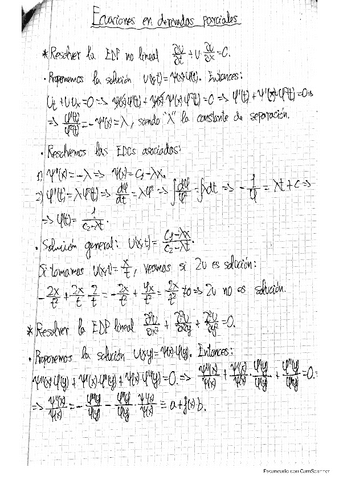 Ecuaciones en derivadas parciales
* Resolver la EDP no lineal ∂u/∂t + u ∂u/∂x = 0.
· Proponemos la solución u(x,t) = Ψ(x)φ(t). Entonces:
⇒ φ'(t)/φ²(t) = -Ψ'(x) = λ, siendo "λ" la constante de separación.
· Resolvemos las EDOs asociadas:
1) Ψ'(x) = -λ ⇒ Ψ(x) = C₁ - λx.
2) φ'(t) = λφ²(t) ⇒ dφ/dt = λφ² ⇒ ∫dφ/φ² = ∫λdt ⇒ -1/φ = λt + c ⇒
⇒ φ(t) = 1/(C₂ - λt)
· Solución general: u(x,t) = (C₁ - λx)/(C₂ - λt)
Si tomamos u(x,t) = x/t, veamos si 2u es solución:
-2x/t² + 2x/t · 2/t = -2x/t² + 4x/t² = 2x/t² ≠ 0 ⇒ 2u no es solución.
* Resolver la EDP lineal ∂²u/∂x² + ∂²u/∂x∂y + ∂²u/∂y² = 0.
· Proponemos la solución u(x,y) = Ψ(x)φ(y). Entonces:
Ψ''(x)φ(y) + Ψ'(x)φ'(y) + Ψ(x)φ''(y) = 0 ⇒ Ψ''(x)/Ψ(x) + Ψ'(x)/Ψ(x) φ'(y)/φ(y) + φ''(y)/φ(y) = 0
⇒ Ψ''(x)/Ψ(x) = -φ''(y)/φ(y) - φ'(y)/φ(y) Ψ'(x)/Ψ(x) = a + f(x) b.
Escaneado con CamScanner